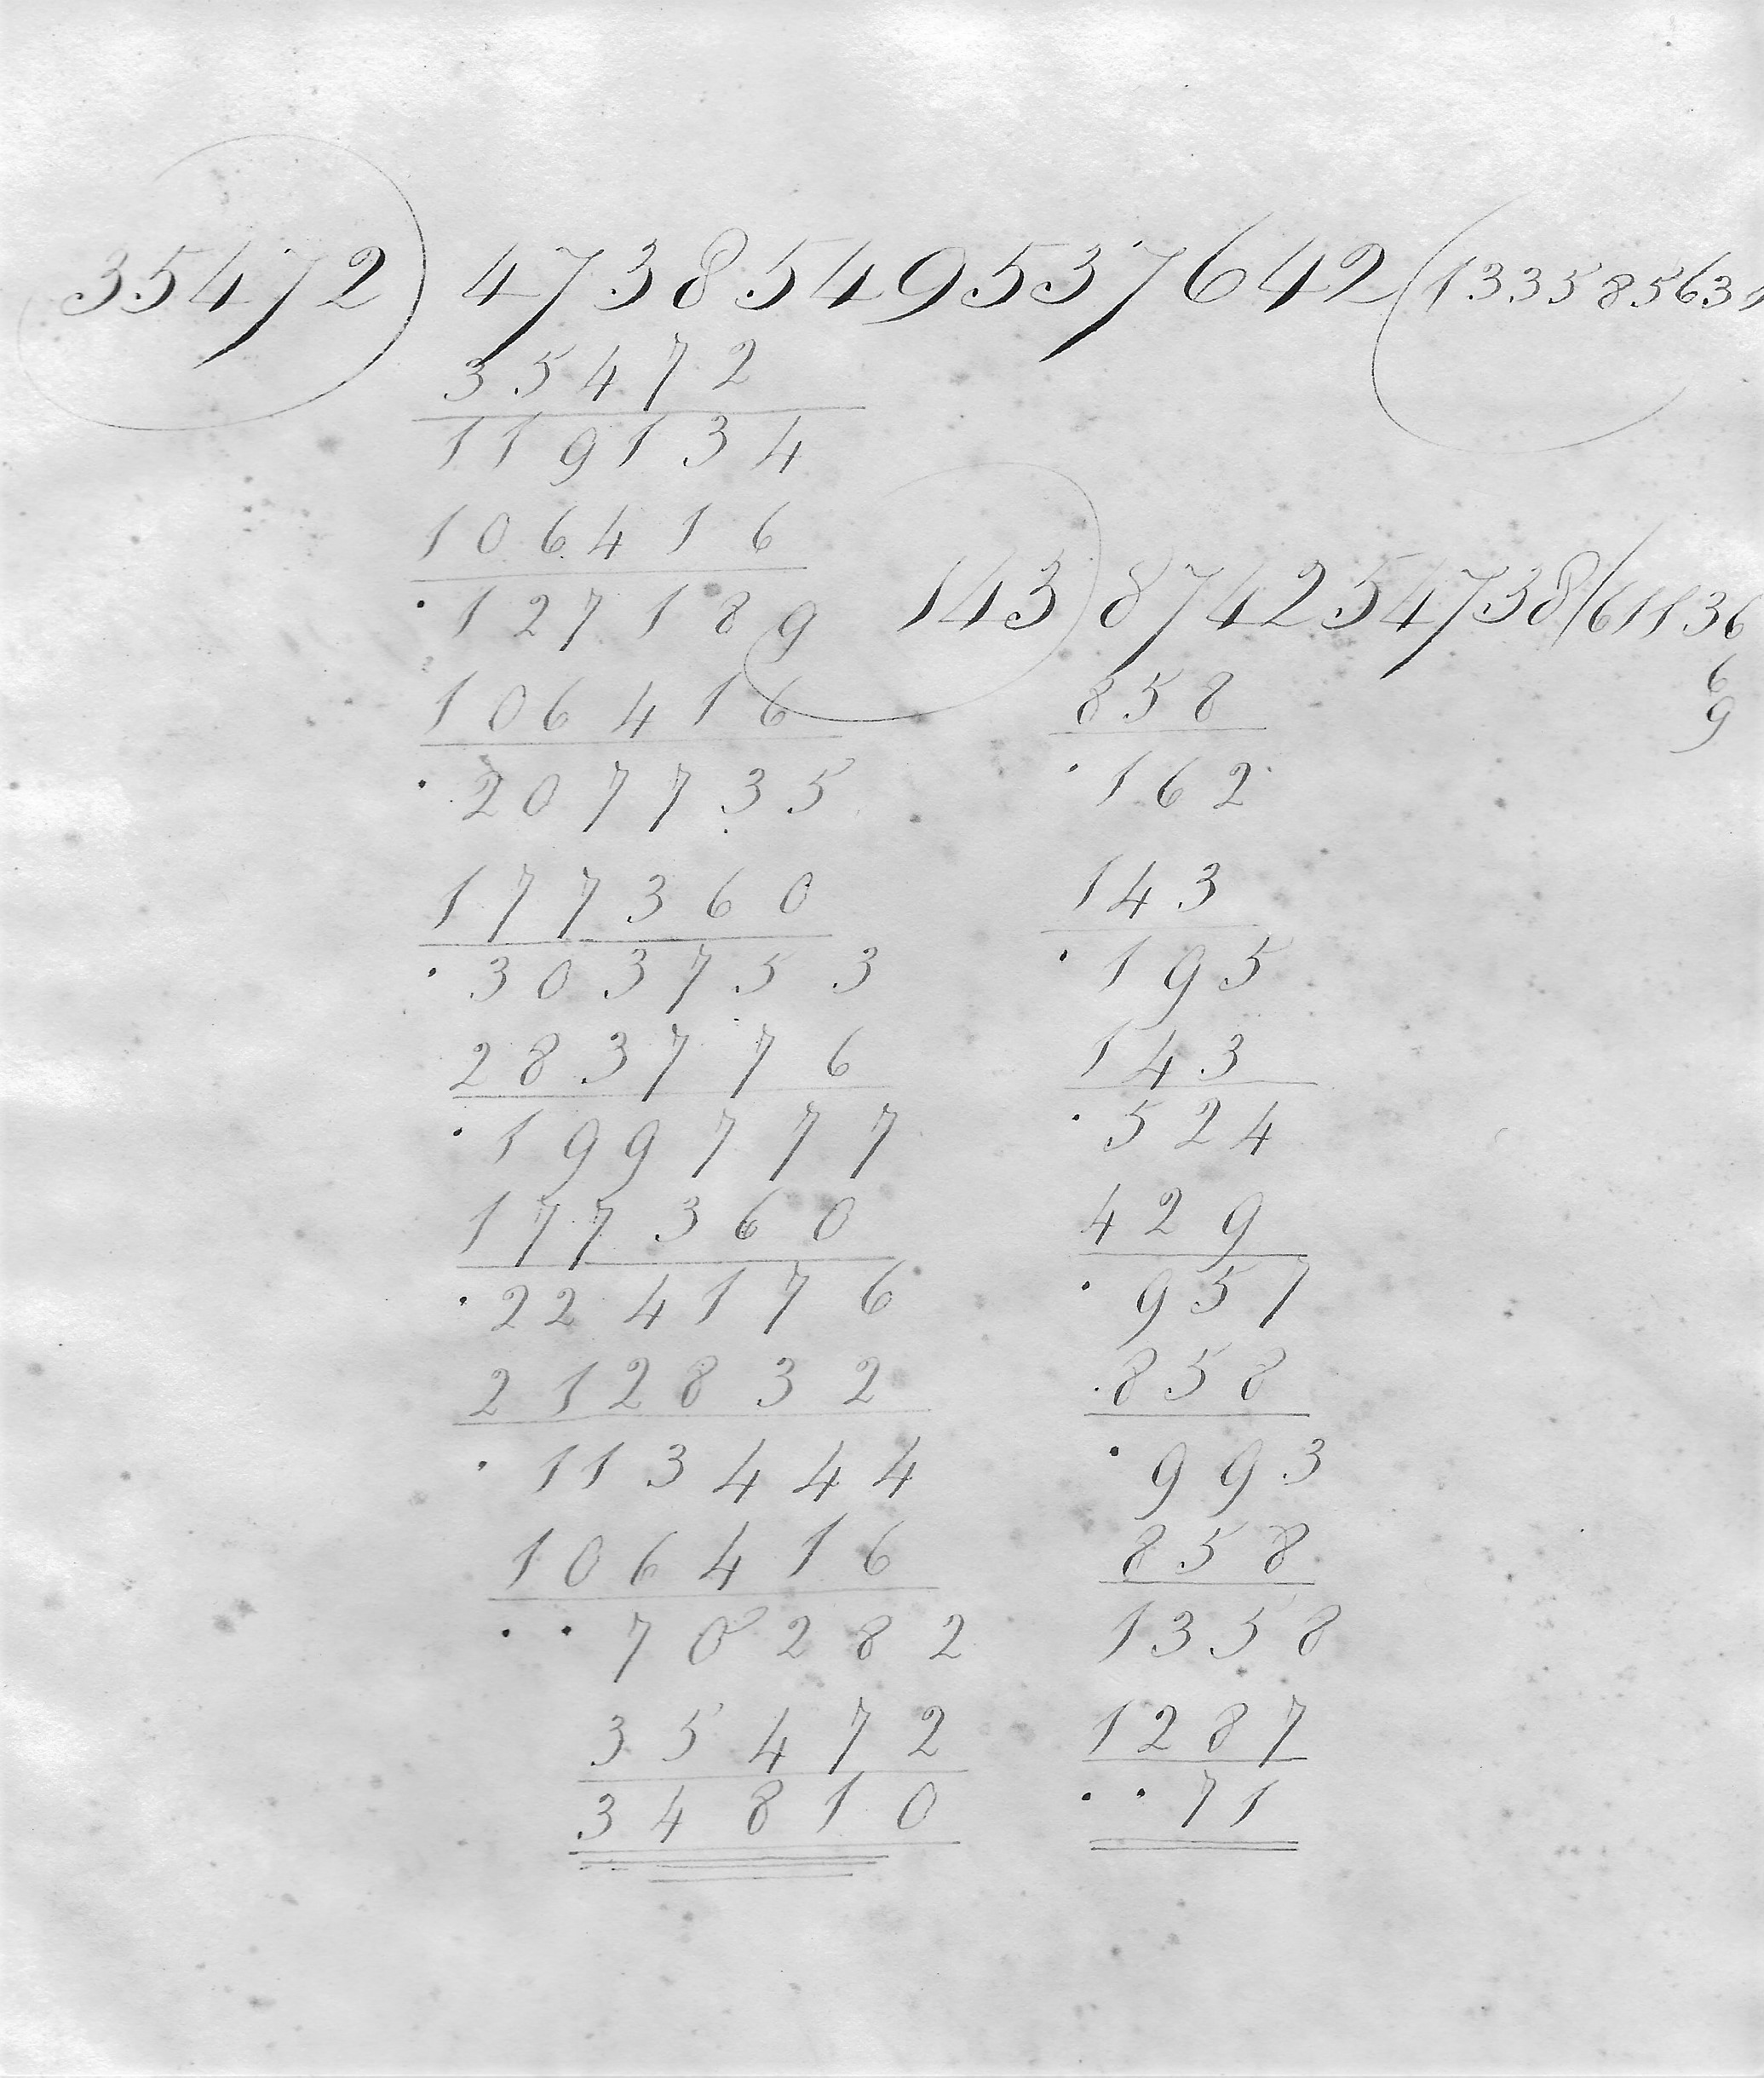 35472) 4738549537642 (133585631
35472
119134
106416
127189
106416
207735
177360
303753
283776
199777
177360
224176
212832
113444
106416
70282
35472
34810
143) 874254738 (61136
6
9
858
162
143
195
143
524
429
957
858
993
858
1358
1287
71